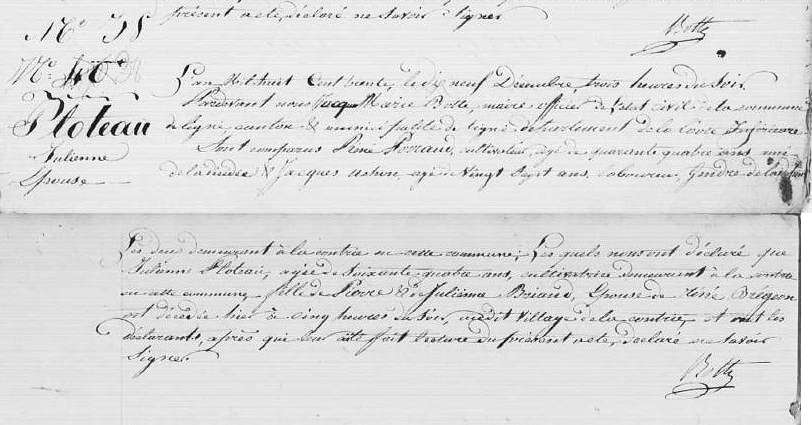 présent acte, déclaré ne savoir signer
Botty
N.º 35
Ploteau
Julienne
Epouse
L'an Mil huit Cent trente, le dix neuf Décembre, trois heures du soir
Pardevant nous Marie maire officier de l'état civil de la commune
de Légné, canton & municipalité de Légné, département de la Loire Inférieure
Sont comparus Réné cultivateur, agé de quarante quatre ans ami
de la décédée & Jacques agé de Vingt Sept ans, laboureur, Gendre de la
Les deux demeurant à la contrie en cette commune; Les quels nous ont déclaré que
Julienne Ploteau, agée de Soixante quatre ans, cultivatrice demeurant à la contrie
en cette commune, fille de Pierre & de Julienne Briand, Epouse de réné Brégeon
est décédée hier à cinq heures du soir, audit Village de la contrie, et ont les
déclarants, après que leur ait été fait lecture du présent acte, déclaré ne savoir
Signer
Botty